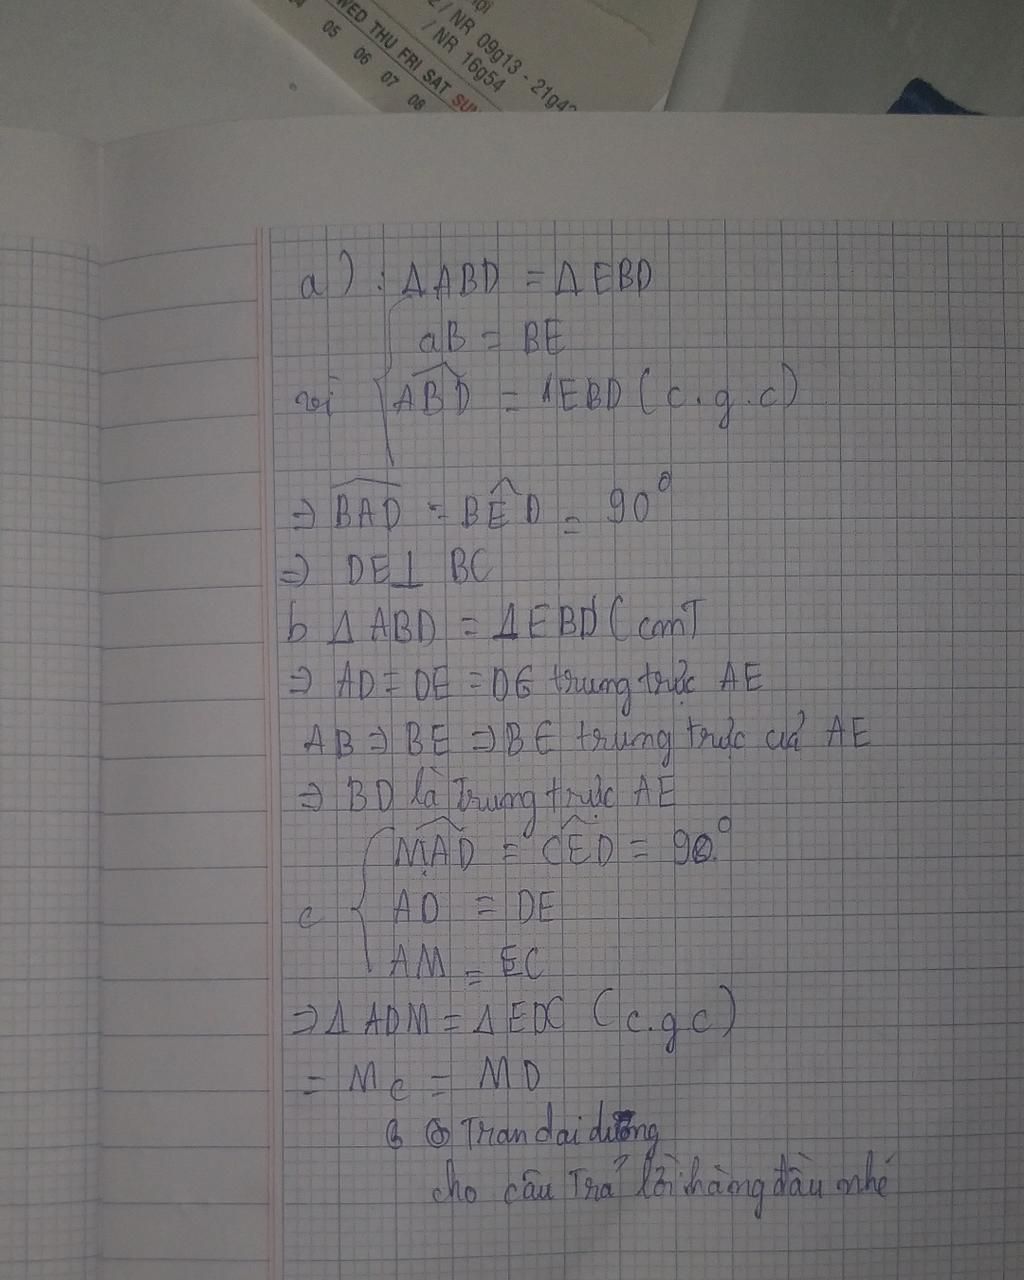 / NR 09g13 - 21g42
/ NR 16g54
WED THU FRI SAT SUN
05 06 07 08
a) : Δ ABD = Δ EBD
aB = BE
ABD = ΔEBD (c.g.c)
⇒ BAD = BÊD = 90°
⇒ DE⊥ BC
b Δ ABD = Δ EBD (cmT
⇒ AD = DE = DE trung trực AE
AB ⇒ BE ⇒ BE trung trực củả AE
⇒ BD là Trung trực AE
MAD = CED = 90°
c AD = DE
AM = EC
⇒ Δ ADM = Δ EDC (c.g c)
= Mc = MD
Tran dai dương
cho câu Trả lời hàng đầu nhé